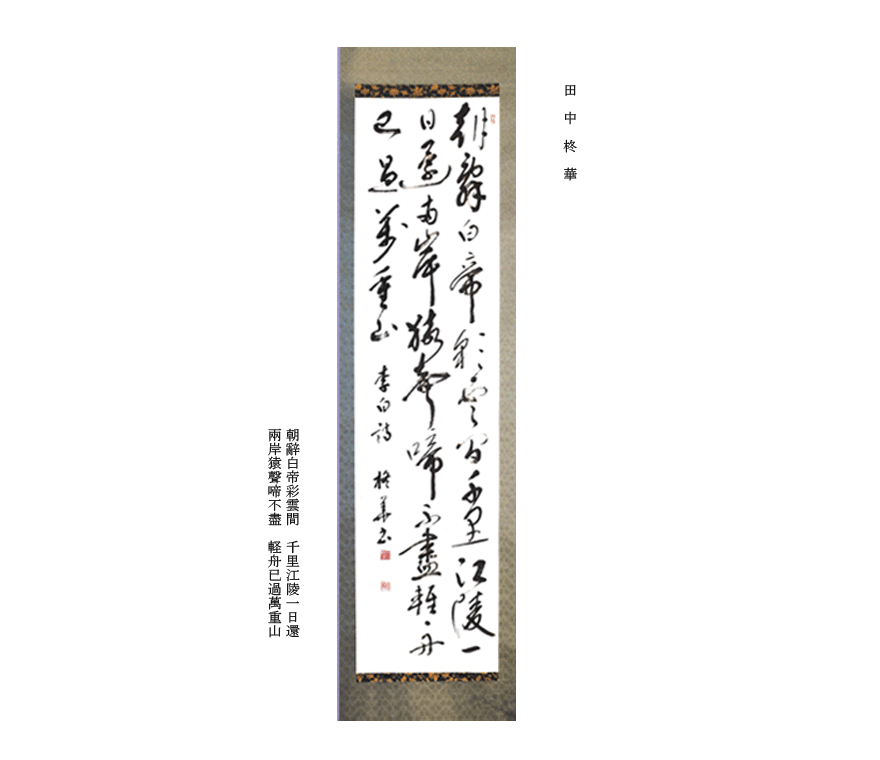 田中柊華
朝辭白帝彩雲間千里江陵一
日還兩岸猿聲啼不盡輕舟
已過萬重山 李白詩 柊華書
朝辭白帝彩雲間 千里江陵一日還
兩岸猿聲啼不盡 軽舟已過萬重山